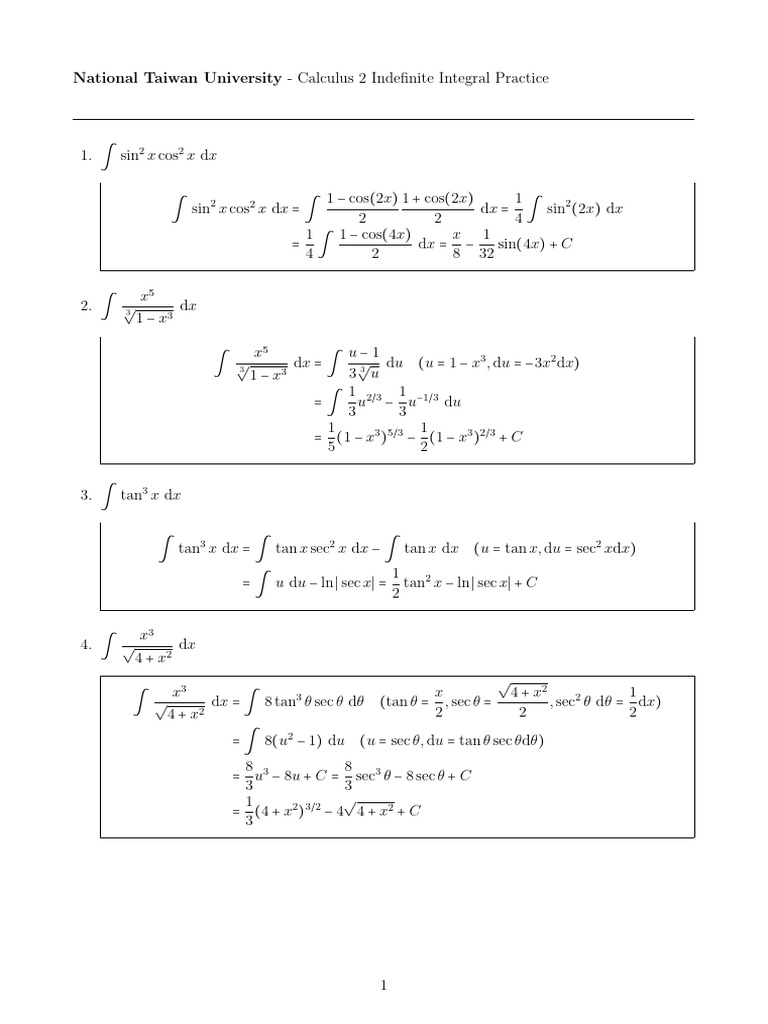 National Taiwan University - Calculus 2 Indefinite Integral Practice
1. ∫ sin² x cos² x dx
∫ sin² x cos² x dx = ∫ (1 − cos(2x))/2 (1 + cos(2x))/2 dx = 1/4 ∫ sin²(2x) dx
= 1/4 ∫ (1 − cos(4x))/2 dx = x/8 − 1/32 sin(4x) + C
2. ∫ x⁵/∛(1 − x³) dx
∫ x⁵/∛(1 − x³) dx = ∫ (u − 1)/(3∛u) du (u = 1 − x³, du = −3x²dx)
= ∫ 1/3 u^(2/3) − 1/3 u^(−1/3) du
= 1/5 (1 − x³)^(5/3) − 1/2 (1 − x³)^(2/3) + C
3. ∫ tan³ x dx
∫ tan³ x dx = ∫ tan x sec² x dx − ∫ tan x dx (u = tan x, du = sec² xdx)
= ∫ u du − ln| sec x| = 1/2 tan² x − ln| sec x| + C
4. ∫ x³/√(4 + x²) dx
∫ x³/√(4 + x²) dx = ∫ 8 tan³ θ sec θ dθ (tan θ = x/2, sec θ = √(4 + x²)/2, sec² θ dθ = 1/2 dx)
= ∫ 8(u² − 1) du (u = sec θ, du = tan θ sec θdθ)
= 8/3 u³ − 8u + C = 8/3 sec³ θ − 8 sec θ + C
= 1/3 (4 + x²)^(3/2) − 4√(4 + x²) + C
1